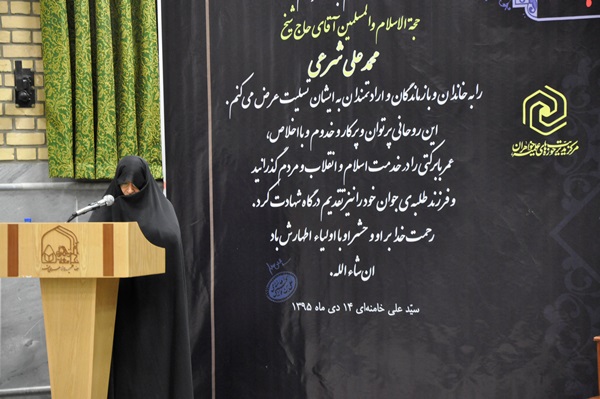 حجة الاسلام والمسلمین آقای حاج شیخ
محمد علی شرعی
را به خاندان و بازماندگان و ارادتمندان به ایشان تسلیت عرض می‌کنم.
این روحانی پرتوان و پرکار و خدوم و با اخلاص،
عمر بابرکتی را در خدمت اسلام و انقلاب و مردم گذرانید
و فرزند طلبه‌ی جوان خود را نیز تقدیم درگاه شهادت کرد.
رحمت خدا بر او و حشر او با اولیاء اطهارش باد
ان شاء الله.
سیّد علی خامنه‌ای ۱۴ دی ماه ۱۳۹۵
مرکز مدیریت حوزه‌های علمیه خواهران